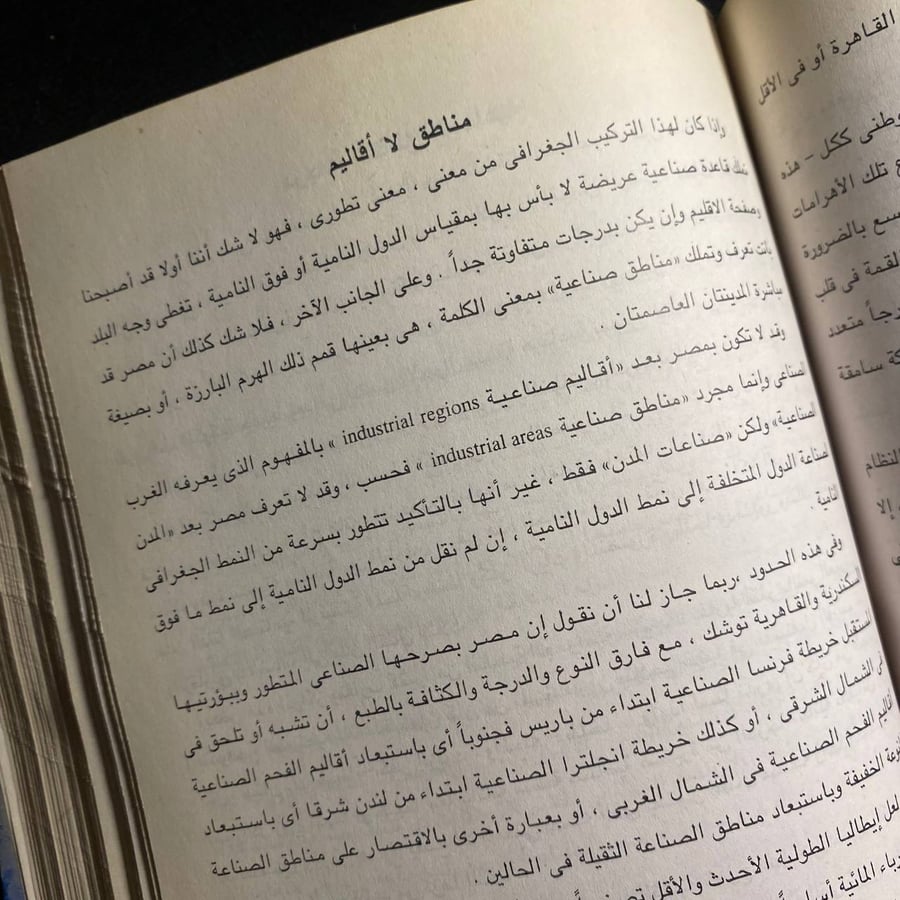 مناطق لا أقاليم
وإذا كان لهذا التركيب الجغرافى من معنى ، معنى تطورى ، فهو لا شك أننا أولا قد أصبحنا
نملك قاعدة صناعية عريضة لا بأس بها بمقياس الدول النامية أو فوق النامية ، تغطى وجه البلد
وصفحة الاقليم وإن يكن بدرجات متفاوتة جداً . وعلى الجانب الآخر ، فلا شك كذلك أن مصر قد
باتت تعرف وتملك «مناطق صناعية» بمعنى الكلمة ، هى بعينها قمم ذلك الهرم البارزة ، أو بصيغة
مباشرة المدينتان العاصمتان .
وقد لا تكون بمصر بعد «أقاليم صناعية industrial regions » بالمفهوم الذى يعرفه الغرب
الصناعى وإنما مجرد «مناطق صناعية industrial areas » فحسب ، وقد لا تعرف مصر بعد «المدن
الصناعية» ولكن «صناعات المدن» فقط ، غير أنها بالتأكيد تتطور بسرعة من النمط الجغرافى
لصناعة الدول المتخلفة إلى نمط الدول النامية ، إن لم نقل من نمط الدول النامية إلى نمط ما فوق
النامية .
وفى هذه الحدود ،ربما جاز لنا أن نقول إن مصر بصرحها الصناعى المتطور وببؤرتيها
السكندرية والقاهرية توشك ، مع فارق النوع والدرجة والكثافة بالطبع ، أن تشبه أو تلحق فى
المستقبل خريطة فرنسا الصناعية ابتداء من باريس فجنوباً أى باستبعاد أقاليم الفحم الصناعية
فى الشمال الشرقى ، أو كذلك خريطة انجلترا الصناعية ابتداء من لندن شرقا أى باستبعاد
أقاليم الفحم الصناعية فى الشمال الغربى ، أو بعبارة أخرى بالاقتصار على مناطق الصناعة
الخفيفة وباستبعاد مناطق الصناعة الثقيلة فى الحالين .
إيطاليا الطولية الأحدث والأقل
المائية
القاهرة أو فى الأقل
ككل - هذه
تلك الأهرامات
بالضرورة
القمة فى قلب
متعدد
سامقة
النظام
إلا